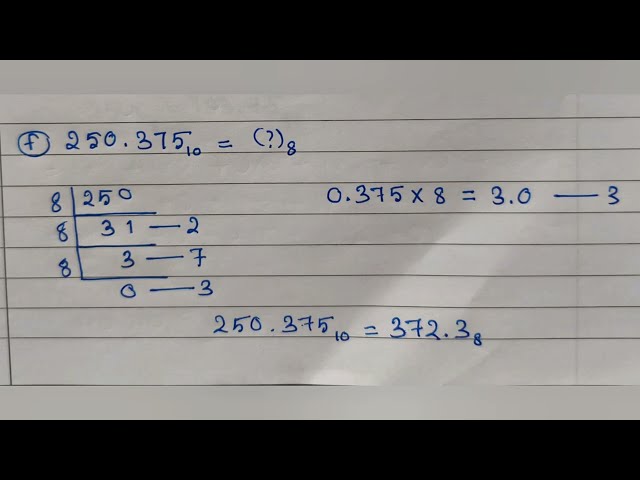 (f) 250.375₁₀ = (?)₈
8 | 250
8 | 31 — 2
8 | 3 — 7
0 — 3
0.375 × 8 = 3.0 — 3
250.375₁₀ = 372.3₈